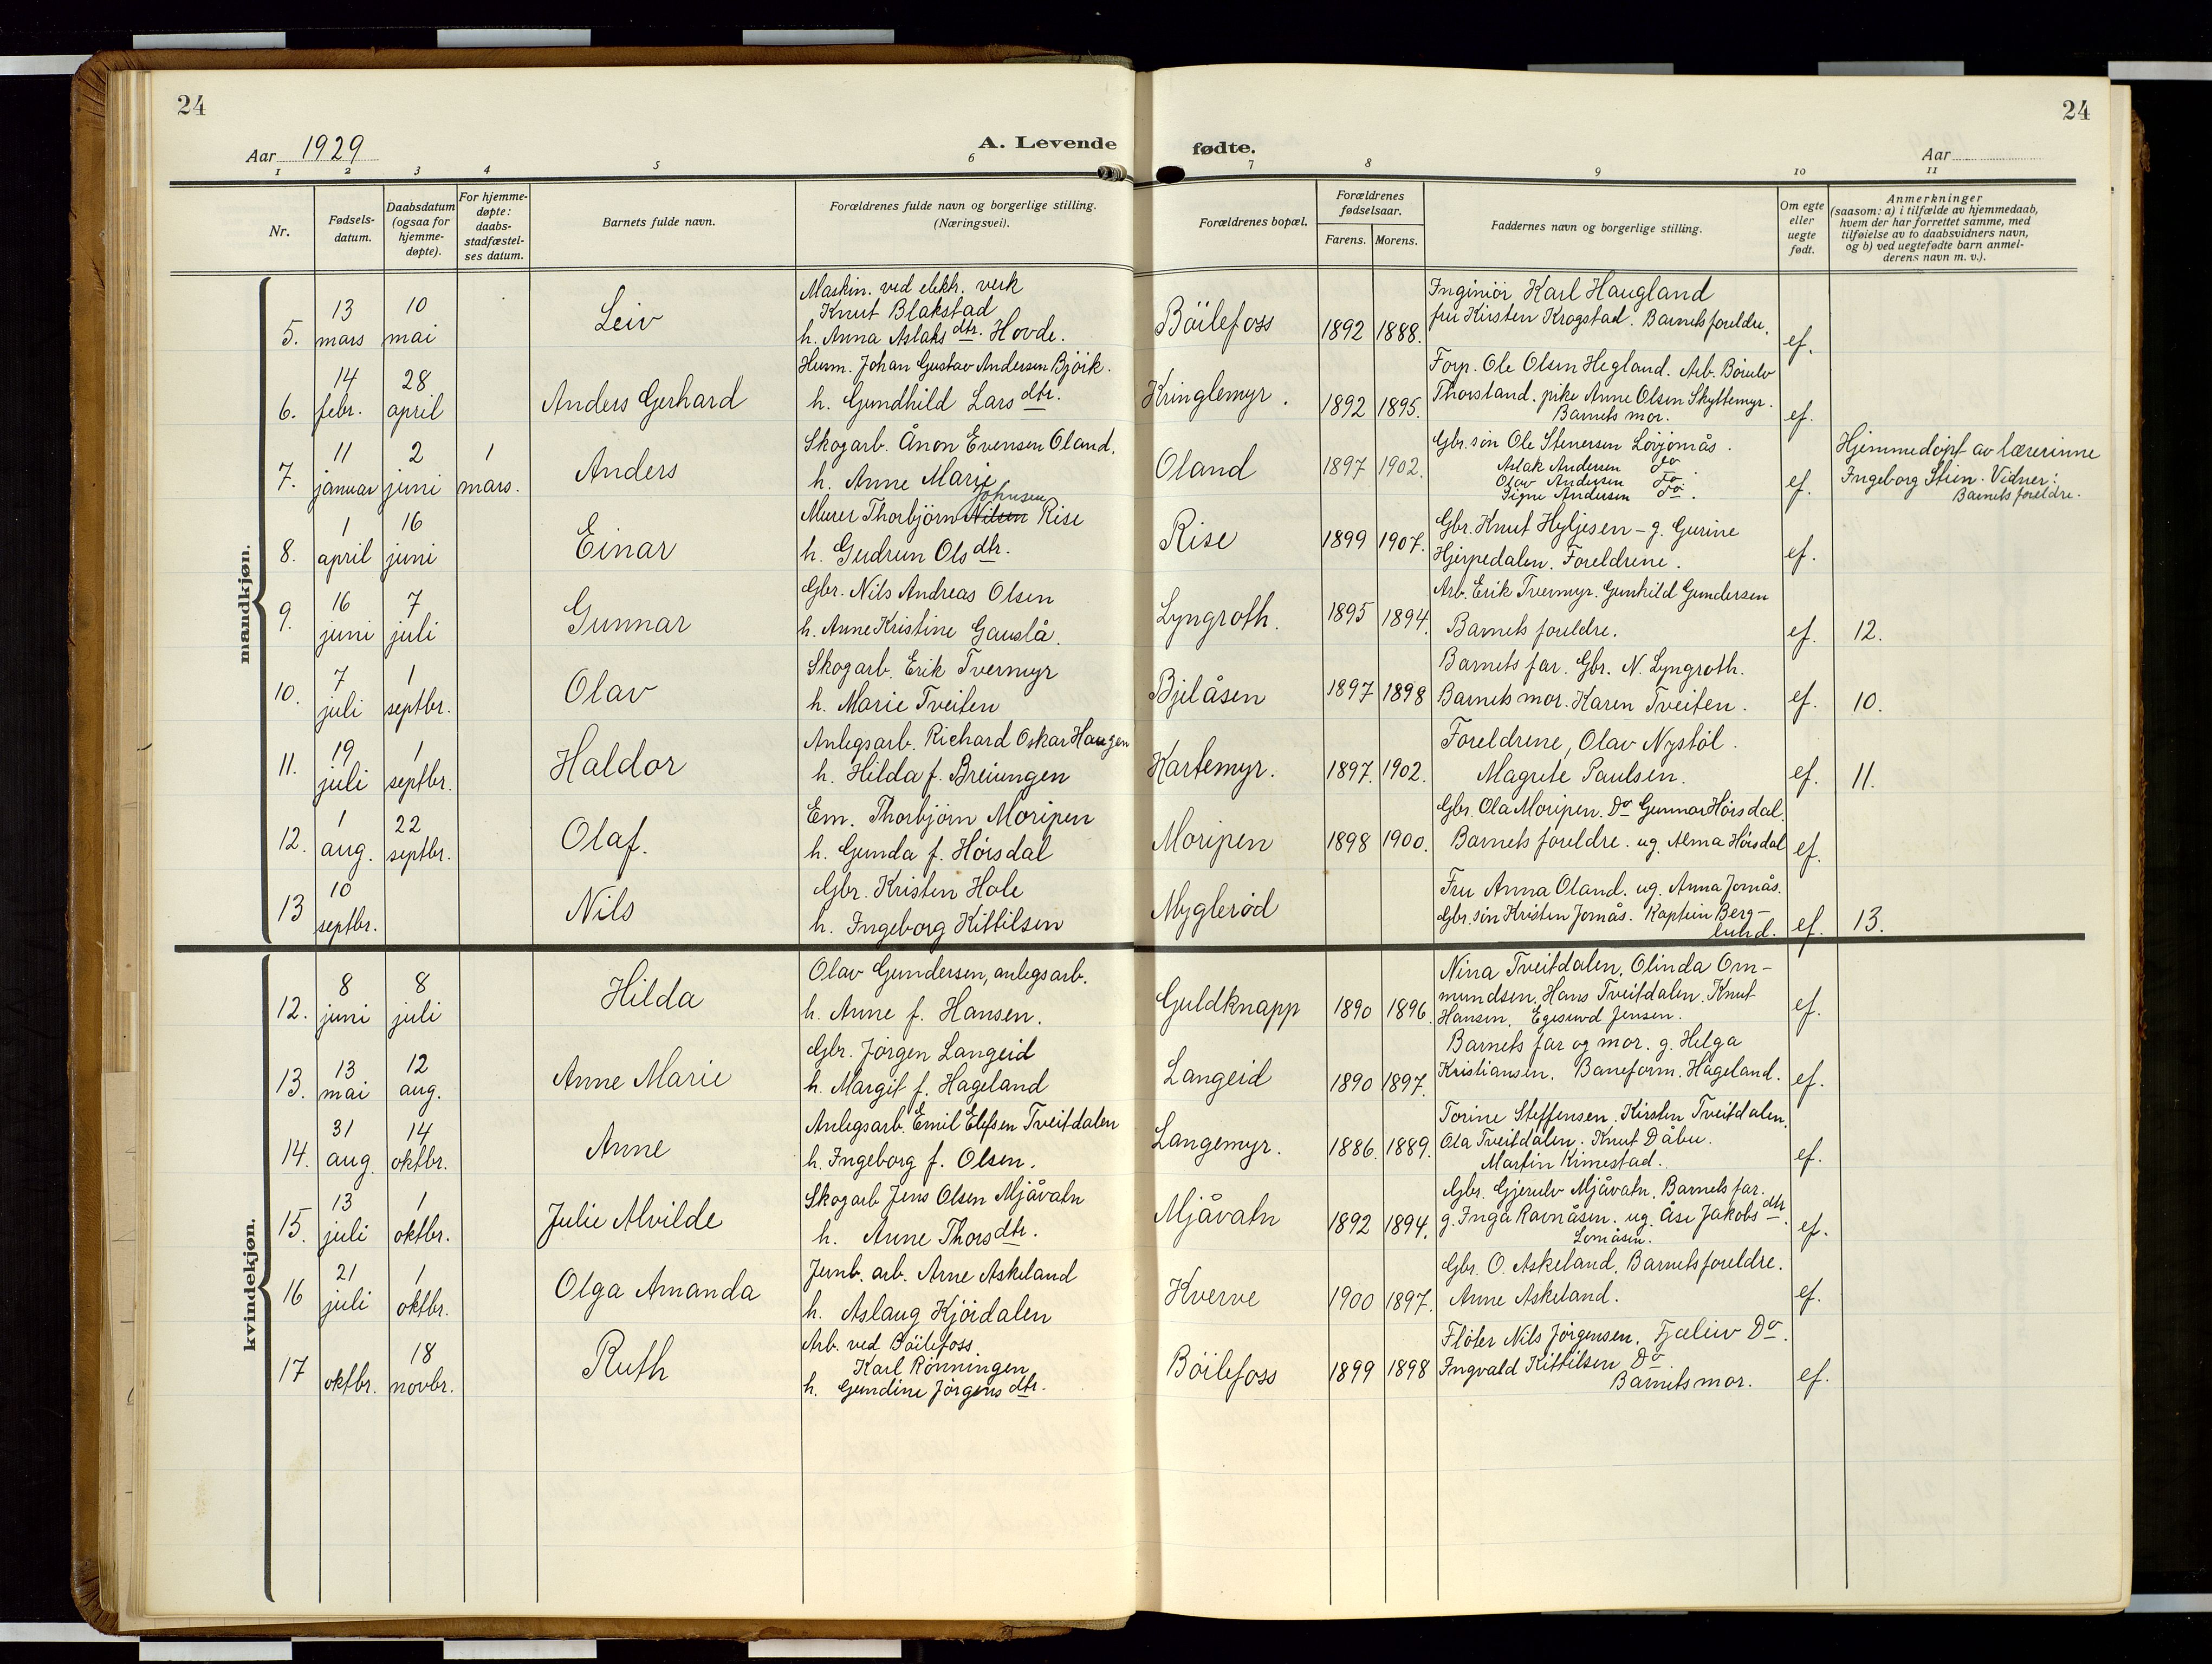 24
24
Aar 1929
A. Levende
fødte.
Aar
1 2 3 4 5 6 7 8 9 10 11
Nr.
Fødsels-
datum.
Daabsdatum
(ogsaa for
hjemme-
døpte).
For hjemme-
døpte:
daabs-
stadfæstel-
ses datum.
Barnets fulde navn.
Forældrenes fulde navn og borgerlige stilling.
(Næringsvei).
Forældrenes bopæl.
Forældrenes
fødselsaar.
Farens. Morens.
Faddernes navn og borgerlige stilling.
Om egte
eller
uegte
født.
Anmerkninger
(saasom: a) i tilfælde av hjemmedaab,
hvem der har forrettet samme, med
tilføielse av to daabsvidners navn,
og b) ved uegtefødte barn anmel-
derens navn m. v.).
mandkjøn.
5.
13
mars
10
mai
Leiv
Maskin. ved elektr. verk
Knut Blakstad
h. Anna Aslaksdtr. Hovde.
Böilefoss
1892 1888.
Inginiör Karl Haugland
fru Kirsten Krogstad. Barnets foreldre.
ef.
6.
14
febr.
28
april
Anders Gerhard
Husm. Johan Gustav Andersen Bjöik.
h. Gundhild Larsdtr.
Kringlemyr.
1892 1895.
Forp. Ole Olsen Hegland. Arb. Börulv
Thorsland. pike Anne Olsen Skyttemyr.
Barnets mor.
ef.
7.
11
januar
2
juni
1
mars.
Anders
Skogarb. Ånon Evensen Oland.
h. Anne Marie
Oland
1897 1902.
Gbr. sön Ole Stenersen Lövjomås.
Aslak Andersen do
Olav Andersen do
Signe Andersen do.
ef.
Hjemmedöpt av lærerinne
Ingeborg Stien. Vidner:
Barnets foreldre.
8.
1
april
16
juni
Einar
Johnsen
Murer Thorbjörn Nilsen Rise
h. Gudrun Olsdtr.
Rise
1899 1907.
Gbr. Knut Hyljesen - g. Gurine
Hjerpedalen. Foreldrene.
ef.
9.
16
juni
7
juli
Gunnar
Gbr. Nils Andreas Olsen
h. Anne Kristine Gauslå.
Lyngroth.
1895 1894.
Arb. Erik Tvermyr. Gunhild Gundersen
Barnets foreldre.
ef. 12.
10.
7
juli
1
septbr.
Olav
Skogarb. Erik Tvermyr
h. Marie Tveiten
Bjelåsen
1897 1898
Barnets far. Gbr. N. Lyngroth.
Barnets mor. Karen Tveiten.
ef. 10.
11.
19
juli
1
septbr.
Haldor
Anlegsarb. Richard Oskar Haugen
h. Hilda f. Breiungen
Kartemyr.
1897. 1902.
Foreldrene, Olav Nystöl.
Magrete Paulsen.
ef. 11.
12.
1
aug.
22
septbr.
Olaf.
Em. Thorbjörn Moripen
h. Gunda f. Hörsdal
Moripen
1898 1900.
Gbr. Ola Moripen. Do Gunnar Hörsdal.
Barnets foreldre. ug. Alma Hörsdal
ef.
13
10
septbr.
Nils
Gbr. Kristen Hole
h. Ingeborg Kittilsen
Myglerød
Fru Anna Oland. ug. Anna Jomås.
Gbr. sön Kristen Jomås. Kaptein Berg-
lund.
ef. 13.
kvindekjøn.
12.
8
juni
8
juli
Hilda
Olav Gundersen, anlegsarb.
h. Anne f. Hansen.
Guldknapp
1890 1896.
Nina Tveitdalen, Olinda Om-
mundsen. Hans Tveitdalen. Knut
Hansen. Egesund Jensen.
ef.
13.
13
mai
12
aug.
Anne Marie
Gbr. Jörgen Langeid
h. Margit f. Hageland
Langeid
1890 1897.
Barnets far og mor. g. Helga
Kristiansen. Baneform. Hageland.
ef.
14.
31
aug.
14
oktbr.
Anne
Anlegsarb. Emil Elefsen Tveitdalen
h. Ingeborg f. Olsen.
Langemyr.
1886. 1889.
Torine Steffensen. Kirsten Tveitdalen.
Ola Tveitdalen. Knut Dåbu.
Martin Kimestad.
ef.
15.
13
juli
1
oktbr.
Julie Alvilde
Skogarb Jens Olsen Mjåvatn
h. Anne Thorsdtr.
Mjåvatn
1892 1894.
Gbr. Gjerulv Mjåvatn. Barnets far.
g. Inga Ravnåsen. ug. Åse Jakobsdtr.
Lomåsen.
ef.
16
21
juli
1
oktbr.
Olga Amanda
Jernb. arb. Arne Askeland
h. Aslaug Kjöidalen
Kverve
1900 1897.
Gbr. O. Askeland. Barnets foreldre.
Anne Askeland.
ef.
17
oktbr.
18
novbr.
Ruth
Arb. ved Böilefoss
Karl Rönningen
h. Gundine Jörgensdtr.
Böilefoss
1899 1898
Flöter Nils Jörgensen. Tjæliv Do.
Ingvald Kittilsen Do.
Barnets mor.
ef.